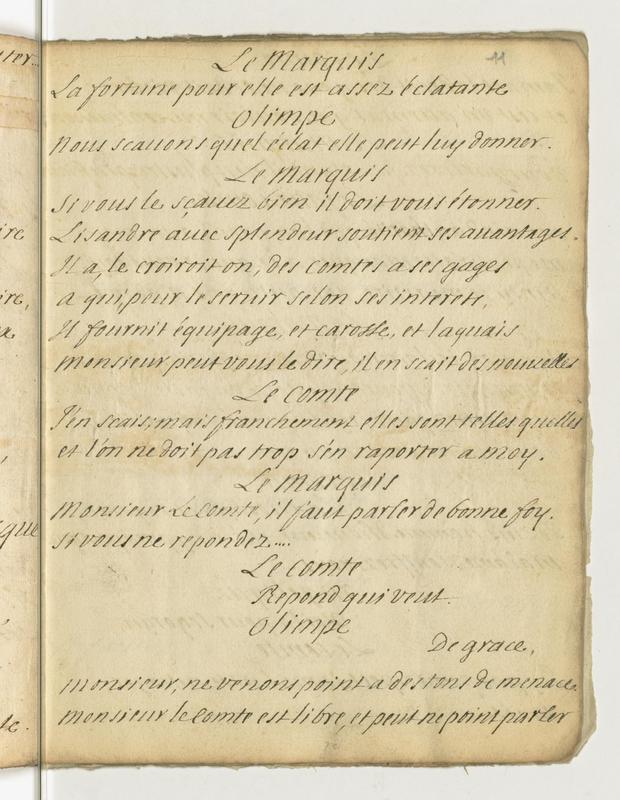 11
Le Marquis
La fortune pour elle est assez éclatante
Olimpe
Nous scauons quel éclat elle peut luy donner.
Le Marquis
Si vous le sçauez bien il doit vous étonner.
Lisandre auec splendeur soutient ses auantages.
Il a, le croiroit on, des comtes a ses gages
a qui, pour le seruir selon ses interets,
Il fournit équipage, et carosse, et laquais
Monsieur peut vous le dire, il en scait des nouuelles
Le Comte
J'en scais; mais franchement elles sont telles quelles
et l'on ne doit pas trop s'en raporter a moy.
Le Marquis
Monsieur Le Comte, il faut parler de bonne foy.
Si vous ne repondez....
Le Comte
Repond qui veut.
Olimpe
De grace,
Monsieur, ne venons point a des tons de menace.
Monsieur le Comte est libre, et peut ne point parler